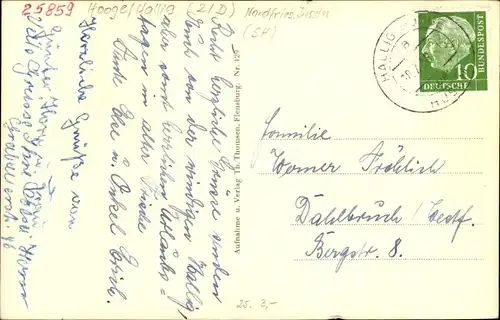 25859
Hooge/Hallig
(21/D)
Nordfries. Inseln
(SH)
HALLIG
HUS
DEUTSCHE
BUNDESPOST
10
Recht herzliche Grüße senden
Euch von der windigen Hallig,
aber sonst herrlichen Urlaubs=
tagen in alter Frische
Tante Else u. Onkel Erich.
Herzliche Grüße von
Aufnahme u. Verlag Th. Thomsen, Flensburg. Nr. 429
Familie
Werner Fröhlich
Dahlbruch/Westf.
Bergstr. 8.
25. 3,-